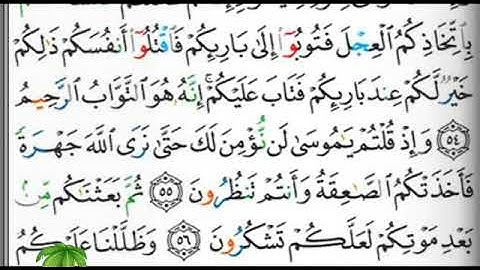 بِٱتِّخَاذِكُمُ ٱلْعِجْلَ فَتُوبُوٓا۟ إِلَىٰ بَارِئِكُمْ فَٱقْتُلُوٓا۟ أَنفُسَكُمْ ذَٰلِكُمْ
خَيْرٌ لَّكُمْ عِندَ بَارِئِكُمْ فَتَابَ عَلَيْكُمْ ۚ إِنَّهُۥ هُوَ ٱلتَّوَّابُ ٱلرَّحِيمُ
۝٥٤ وَإِذْ قُلْتُمْ يَٰمُوسَىٰ لَن نُّؤْمِنَ لَكَ حَتَّىٰ نَرَى ٱللَّهَ جَهْرَةً
فَأَخَذَتْكُمُ ٱلصَّٰعِقَةُ وَأَنتُمْ تَنظُرُونَ ۝٥٥ ثُمَّ بَعَثْنَٰكُم مِّنۢ
بَعْدِ مَوْتِكُمْ لَعَلَّكُمْ تَشْكُرُونَ ۝٥٦ وَظَلَّلْنَا عَلَيْكُمُ